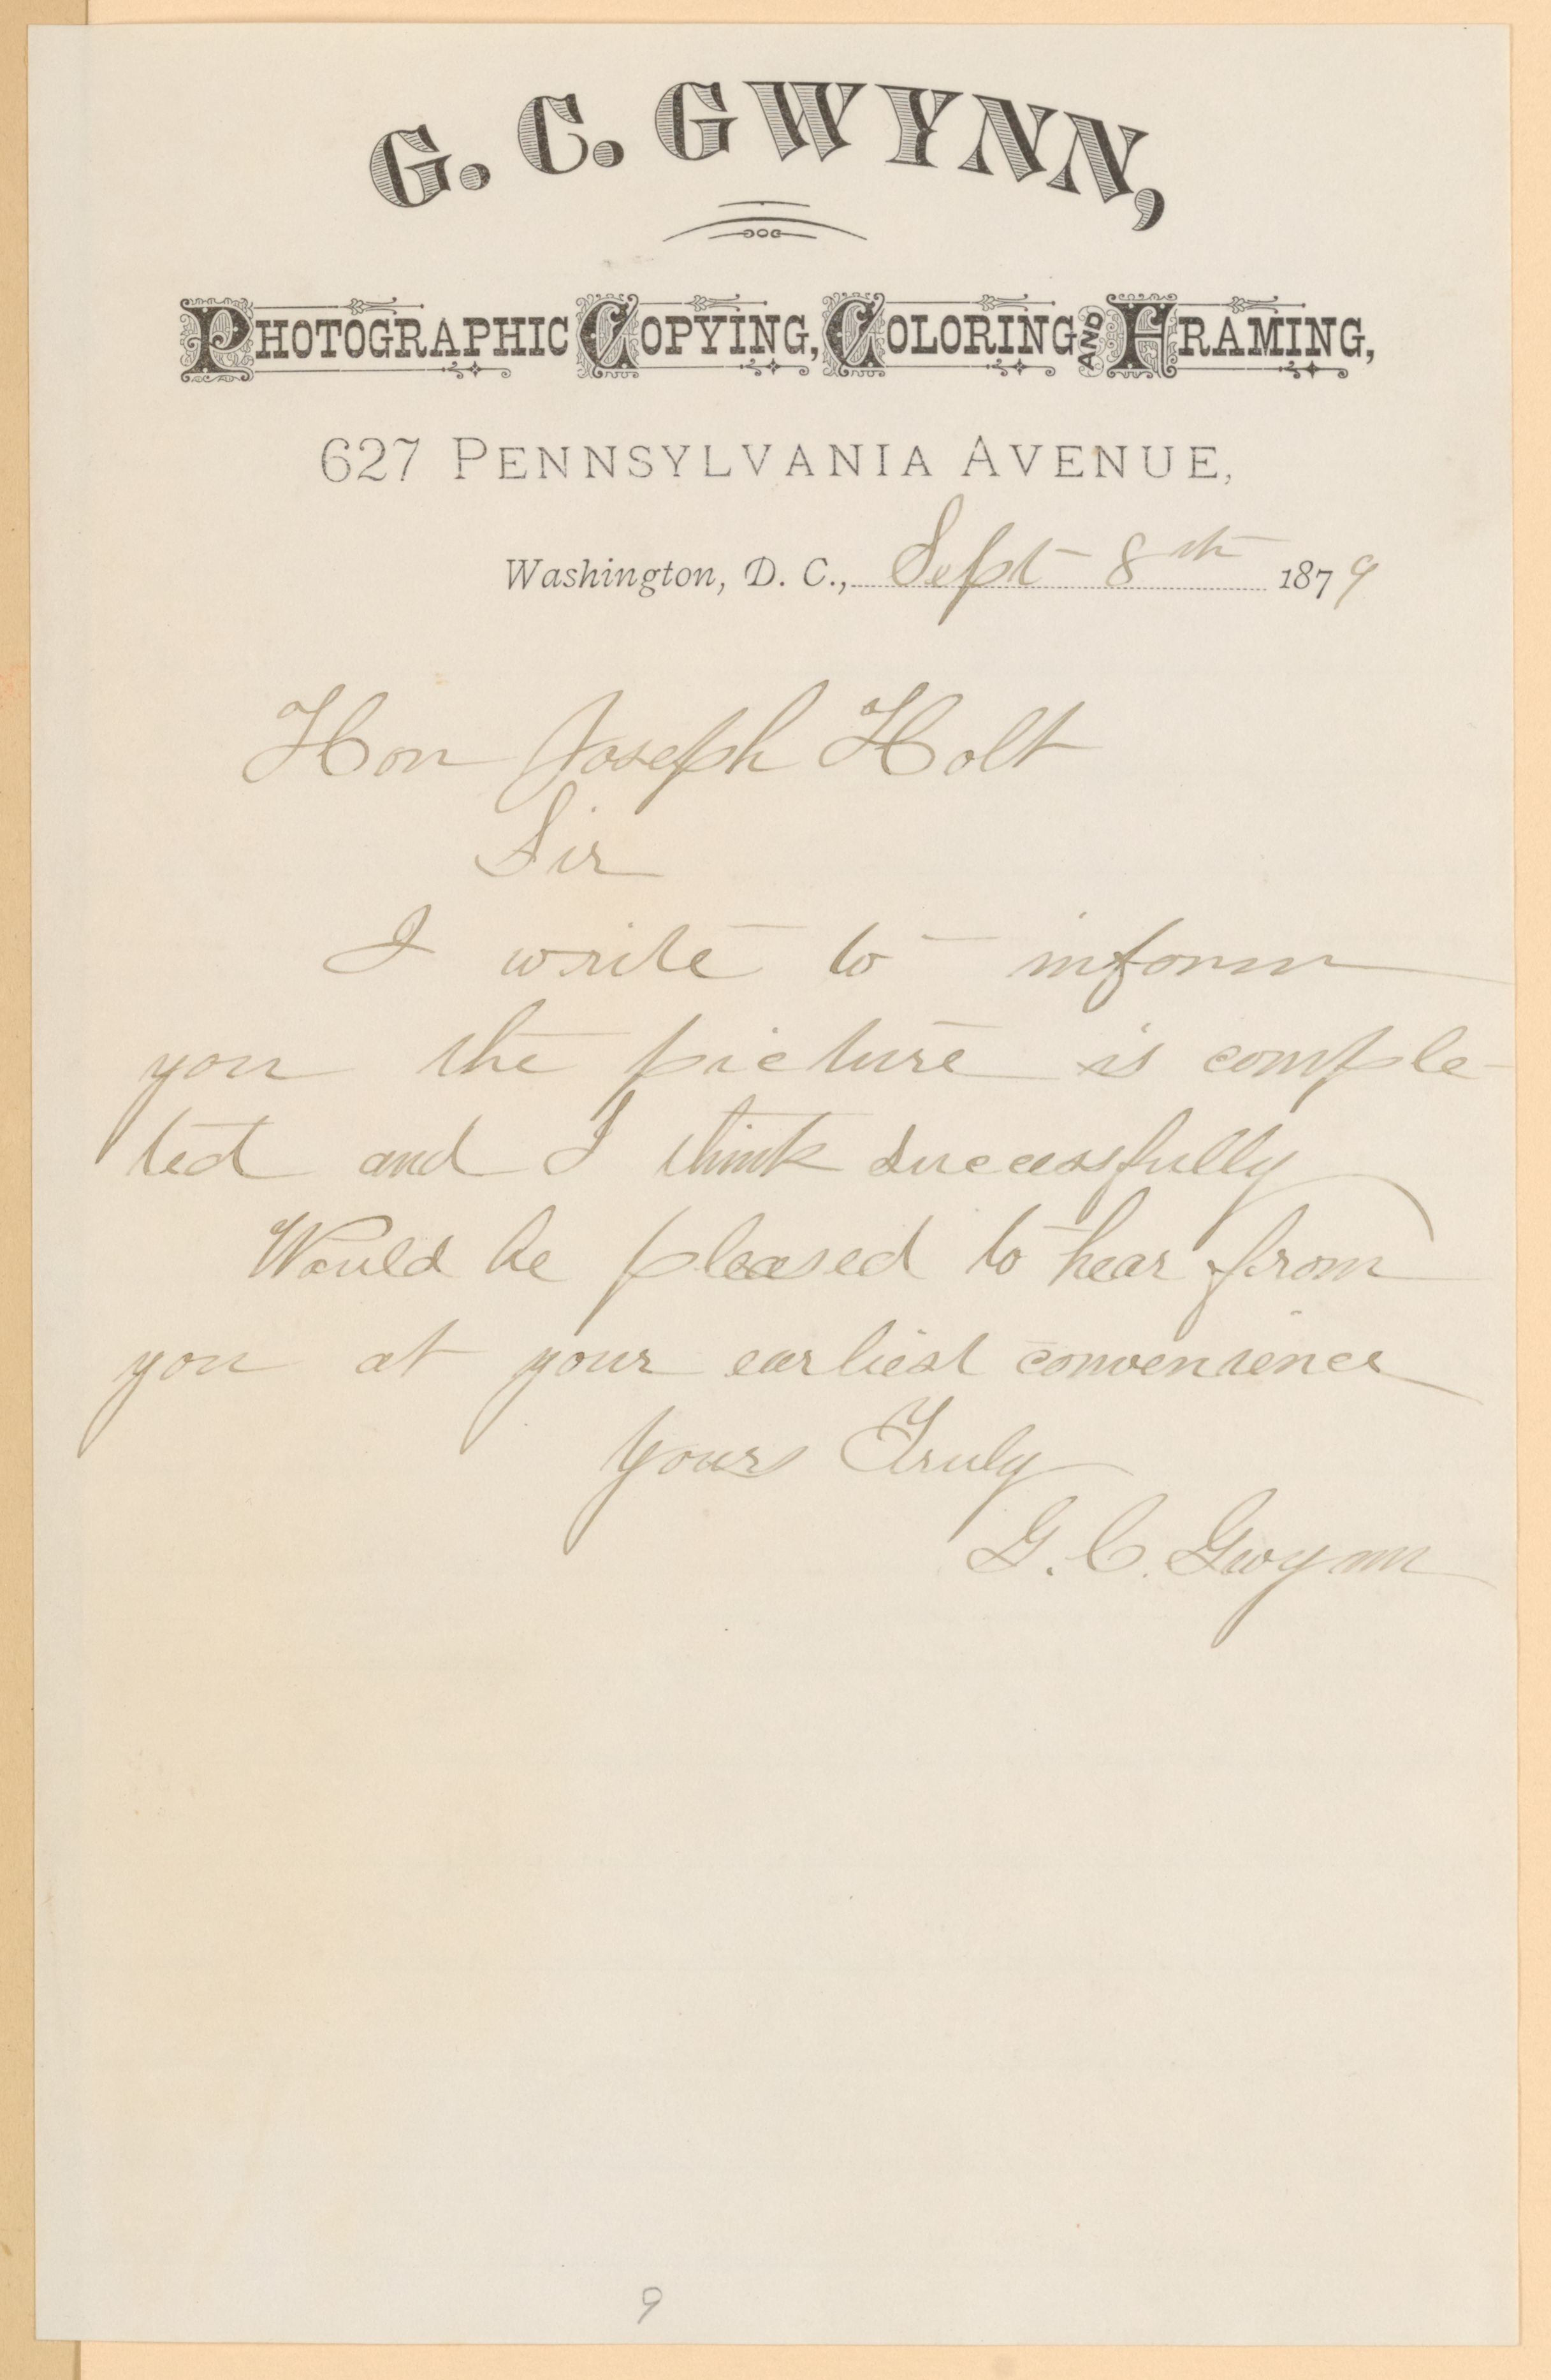 G. C. GWYNN,
PHOTOGRAPHIC COPYING, COLORING AND FRAMING,
627 PENNSYLVANIA AVENUE,
Washington, D. C., Sept 8th 1879
Hon Joseph Holt
Sir
I write to inform
you the picture is comple-
ted and I think successfully
Would be pleased to hear from
you at your earliest convenience
Yours Truly
G. C. Gwynn
9